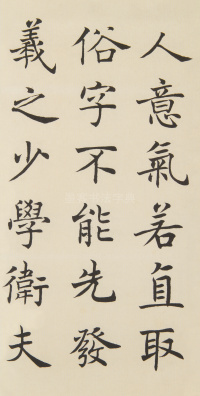 人意氣若直取
俗字不能先發
義之少學衛夫